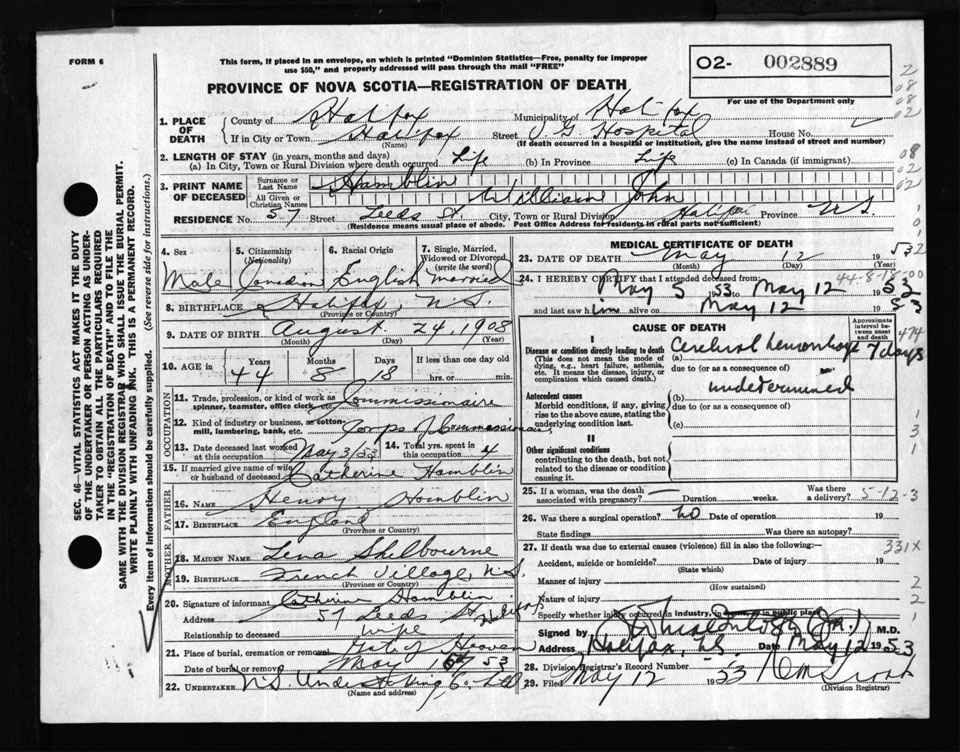 FORM 6
This form, if placed in an envelope, on which is printed "Dominion Statistics—Free, penalty for improper
use $50," and properly addressed will pass through the mail "FREE"
O2- 002889
For use of the Department only
PROVINCE OF NOVA SCOTIA—REGISTRATION OF DEATH
1. PLACE OF DEATH
County of Halifax Municipality of Halifax
If in City or Town Halifax Street V G Hospital House No.
(Name) (If death occurred in a hospital or institution, give the name instead of street and number)
2. LENGTH OF STAY (in years, months and days)
(a) In City, Town or Rural Division where death occurred Life (b) In Province Life (c) In Canada (if immigrant)
3. PRINT NAME OF DECEASED
Surname or Last Name Hamblin
All Given or Christian Names William John
RESIDENCE No. 57 Street Leeds St. City, Town or Rural Division Halifax Province N.S.
(Residence means usual place of abode. Post Office Address for residents in rural parts not sufficient)
4. Sex 5. Citizenship (Nationality) 6. Racial Origin 7. Single, Married, Widowed or Divorced (write the word)
Male Canadian English Married
8. BIRTHPLACE Halifax, N.S.
(Province or Country)
9. DATE OF BIRTH August 24, 1908
(Month) (Day) (Year)
10. AGE in Years Months Days If less than one day old
44 8 18 hrs. or min.
OCCUPATION
11. Trade, profession, or kind of work as spinner, teamster, office clerk, etc. Commissionaire
12. Kind of industry or business, as cotton-mill, lumbering, bank, etc. Corps of Commissionaires
13. Date deceased last worked at this occupation May 3/53 14. Total yrs. spent in this occupation 4
15. If married give name of wife or husband of deceased Catherine Hamblin
FATHER
16. NAME Henry Hamblin
17. BIRTHPLACE England
(Province or Country)
MOTHER
18. MAIDEN NAME Lena Shelbourne
19. BIRTHPLACE French Village, N.S.
(Province or Country)
20. Signature of informant Catherine Hamblin
Address 57 Leeds St Halifax
Relationship to deceased wife
21. Place of burial, cremation or removal Gate of Heaven
Date of burial or removal May 53
22. UNDERTAKER N.S. Undertaking Co. Ltd
(Name and address)
MEDICAL CERTIFICATE OF DEATH
23. DATE OF DEATH May 12 1953
(Month) (Day) (Year)
24. I HEREBY CERTIFY that I attended deceased from:
May 5 53 to May 12 1953
44-8-18-00
and last saw him alive on May 12 1953
CAUSE OF DEATH
Approximate interval between onset and death
I
Disease or condition directly leading to death
(This does not mean the mode of dying, e.g., heart failure, asthenia, etc. It means the disease, injury, or complication which caused death.)
(a) Cerebral hemorrhage 7 days
due to (or as a consequence of)
Antecedent causes
Morbid conditions, if any, giving rise to the above cause, stating the underlying condition last.
undetermined
(b)
due to (or as a consequence of)
(c)
II
Other significant conditions
contributing to the death, but not related to the disease or condition causing it.
25. If a woman, was the death associated with pregnancy? Duration weeks. Was there a delivery?
5-12-3
26. Was there a surgical operation? no Date of operation 19
State findings Was there an autopsy?
27. If death was due to external causes (violence) fill in also the following:—
331X
Accident, suicide or homicide? Date of injury 19
(State which)
Manner of injury
(How sustained)
Nature of injury
Specify whether injury occurred in industry, in home, or in public place
Signed by M.D.
Address Halifax, N.S. Date May 12 1953
28. Division Registrar's Record Number
29. Filed May 12 1953
(Division Registrar)
SEC. 46—VITAL STATISTICS ACT MAKES IT THE DUTY
OF THE UNDERTAKER OR PERSON ACTING AS UNDER-
TAKER TO OBTAIN ALL THE PARTICULARS REQUIRED
IN THE "REGISTRATION OF DEATH" AND TO FILE THE
SAME WITH THE DIVISION REGISTRAR WHO SHALL ISSUE THE BURIAL PERMIT.
WRITE PLAINLY WITH UNFADING INK. THIS IS A PERMANENT RECORD.
Every item of information should be carefully supplied. (See reverse side for instructions.)
2
08
08
02
08
02
02